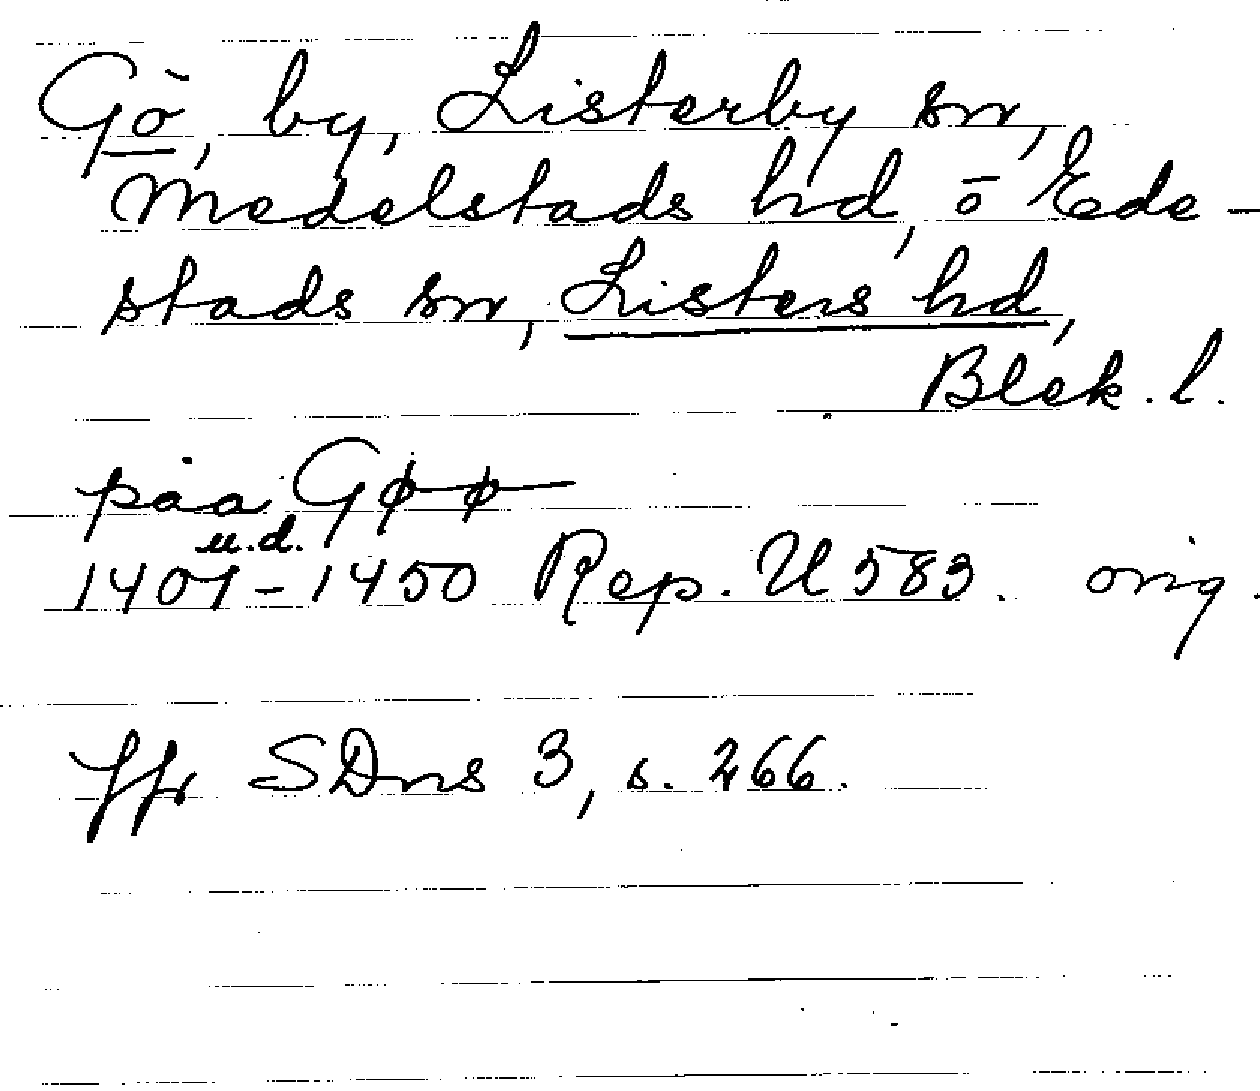 Gö, by, Listerby sn,
Medelstads hd, o Ede-
stads sn, Listers hd,
Blek. l.
paa Gøø
u.d.
1401-1450 Rep. II 583. orig.
Jfr SDns 3, s. 266.